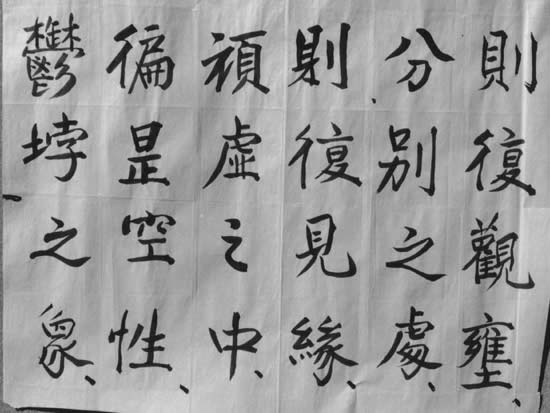 則復觀壅、
分别之處、
則復見緣、
頑虛之中、
徧是空性、
鬱𡋯之象、